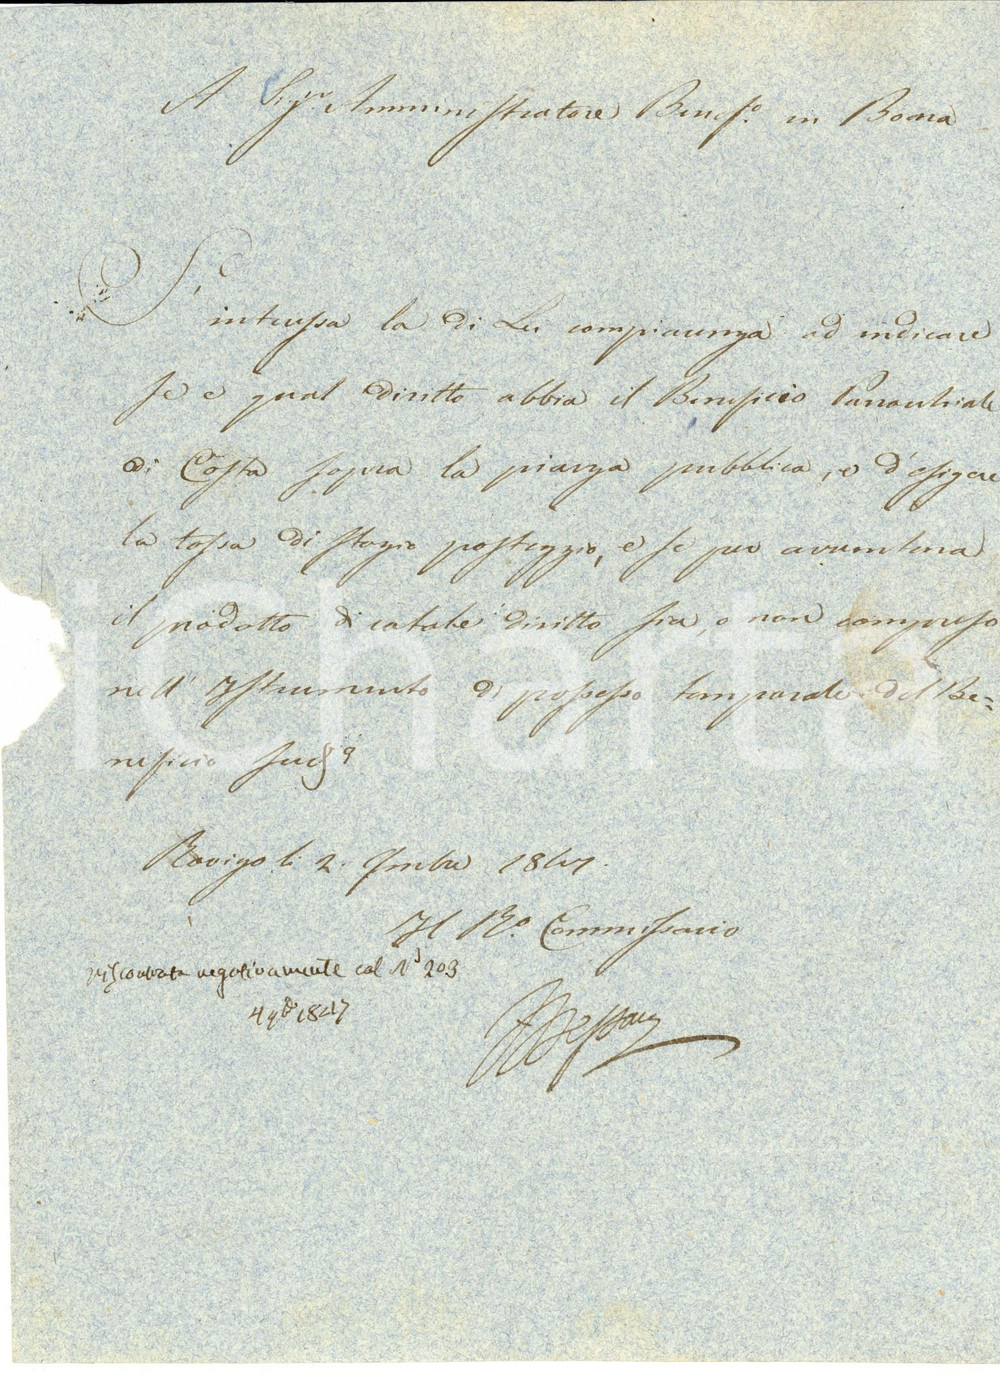 A Sigr. Amministratore Benefo. in Boara
S'
interessa la di Lei compiacenza ad indicare
se e qual diritto abbia il Beneficio Parrochiale
di Costa sopra la piazza pubblica, o d'esigere
la tassa di stazio posteggio, e se per avventura
il prodotto di cotale diritto sia, o non compreso
nell' Istrumento di possesso temporale del Be=
neficio sudo
Rovigo li 2. 9mbre 1847.
Il Ro. Commissario
riscontrata negativamente col No 203
4 9bre 1847
iCharta